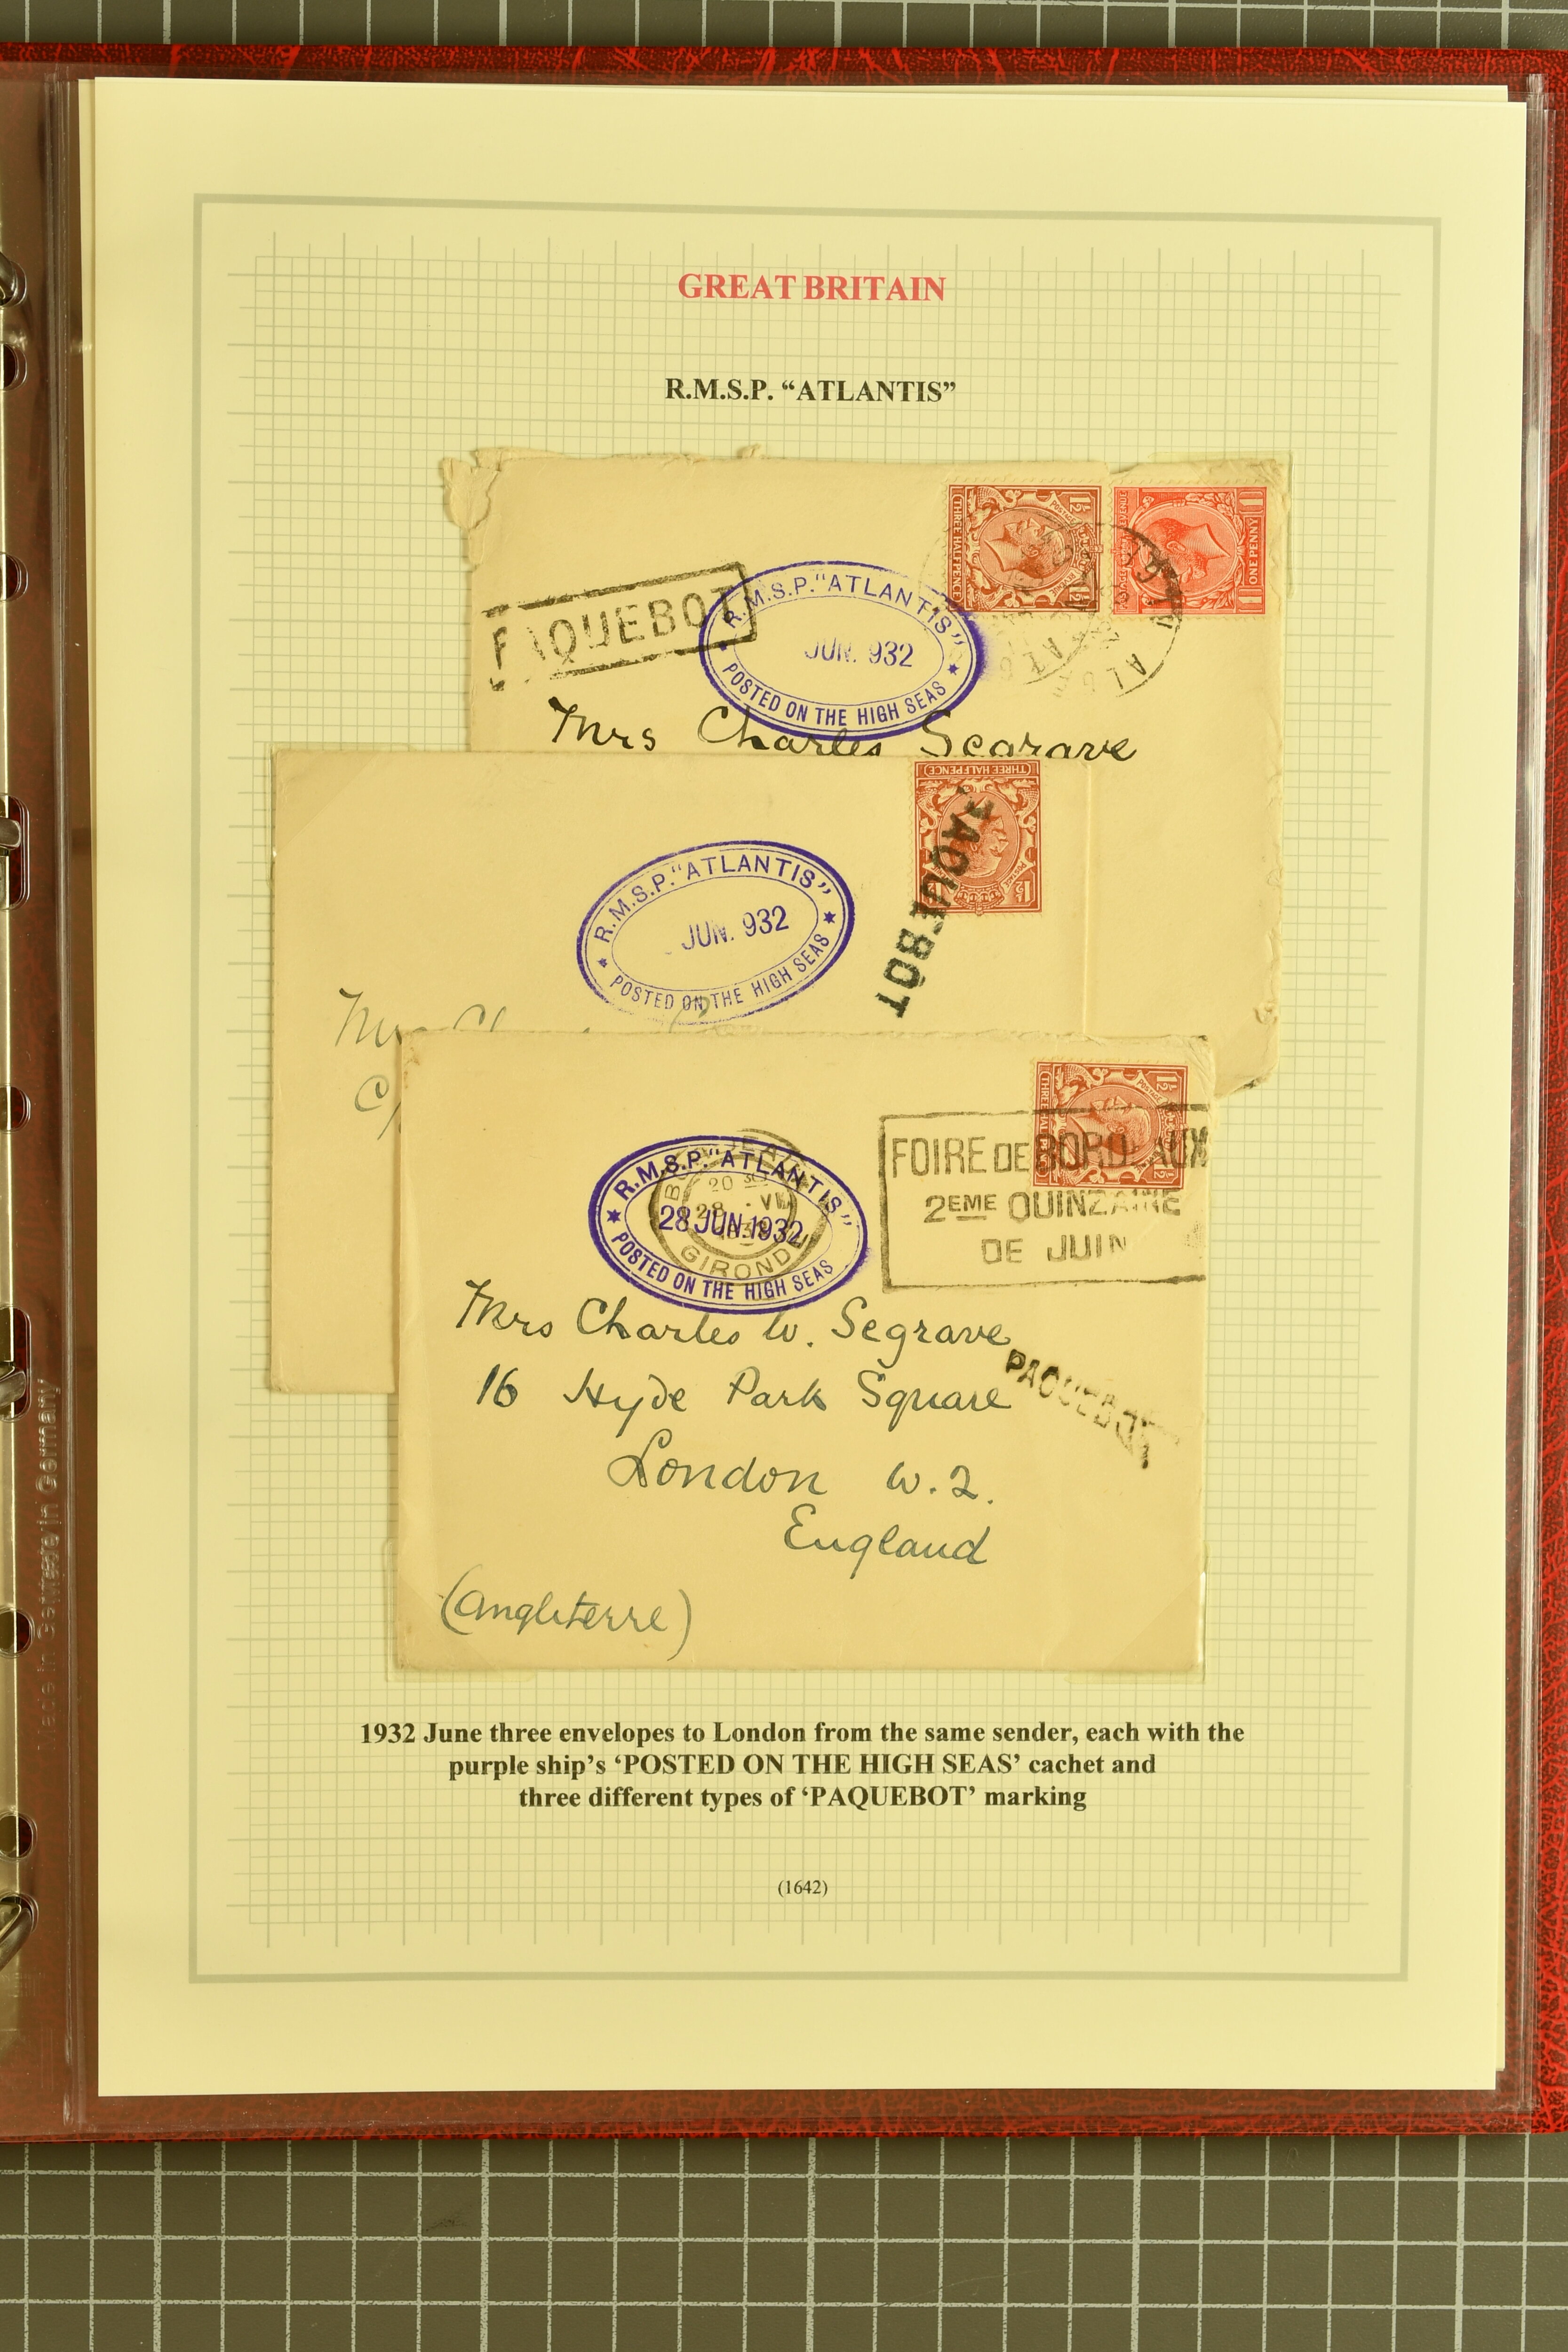 GREAT BRITAIN
R.M.S.P. “ATLANTIS”
THREE HALFPENCE
ONE PENNY
PAQUEBOT
R.M.S.P. "ATLANTIS"
JUN. 932
POSTED ON THE HIGH SEAS
Mrs Charles Segrave
THREE HALFPENCE
PAQUEBOT
R.M.S.P. "ATLANTIS"
JUN. 932
POSTED ON THE HIGH SEAS
FOIRE DE BORDEAUX
2EME QUINZAINE
DE JUIN
R.M.S.P. "ATLANTIS"
28 JUN. 1932
POSTED ON THE HIGH SEAS
GIRONDE
Mrs Charles W. Segrave
16 Hyde Park Square
PAQUEBOT
London W.2.
England
(Angleterre)
1932 June three envelopes to London from the same sender, each with the
purple ship’s ‘POSTED ON THE HIGH SEAS’ cachet and
three different types of ‘PAQUEBOT’ marking
(1642)
Made in Germany